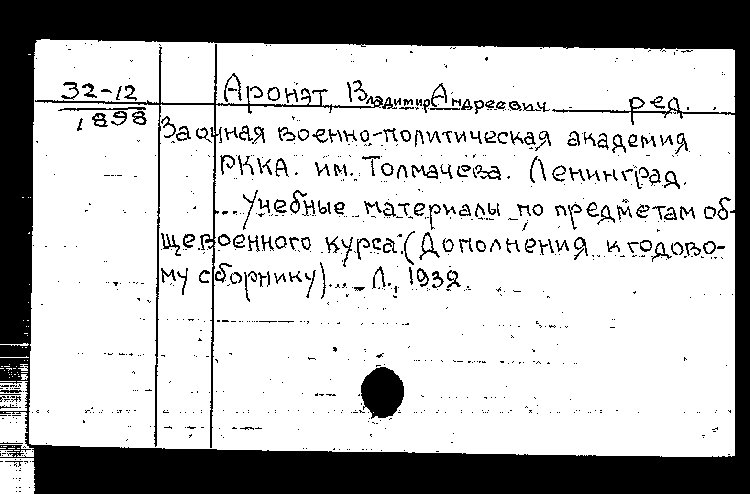 32-12
1898
Аронят, Владимир Андреевич ред.
Заочная военно-политическая академия
РККА. им. Толмачева. Ленинград.
...Учебные материалы по предметам об-
щевоенного курса. (Дополнения к годово-
му сборнику)... - Л., 1932.